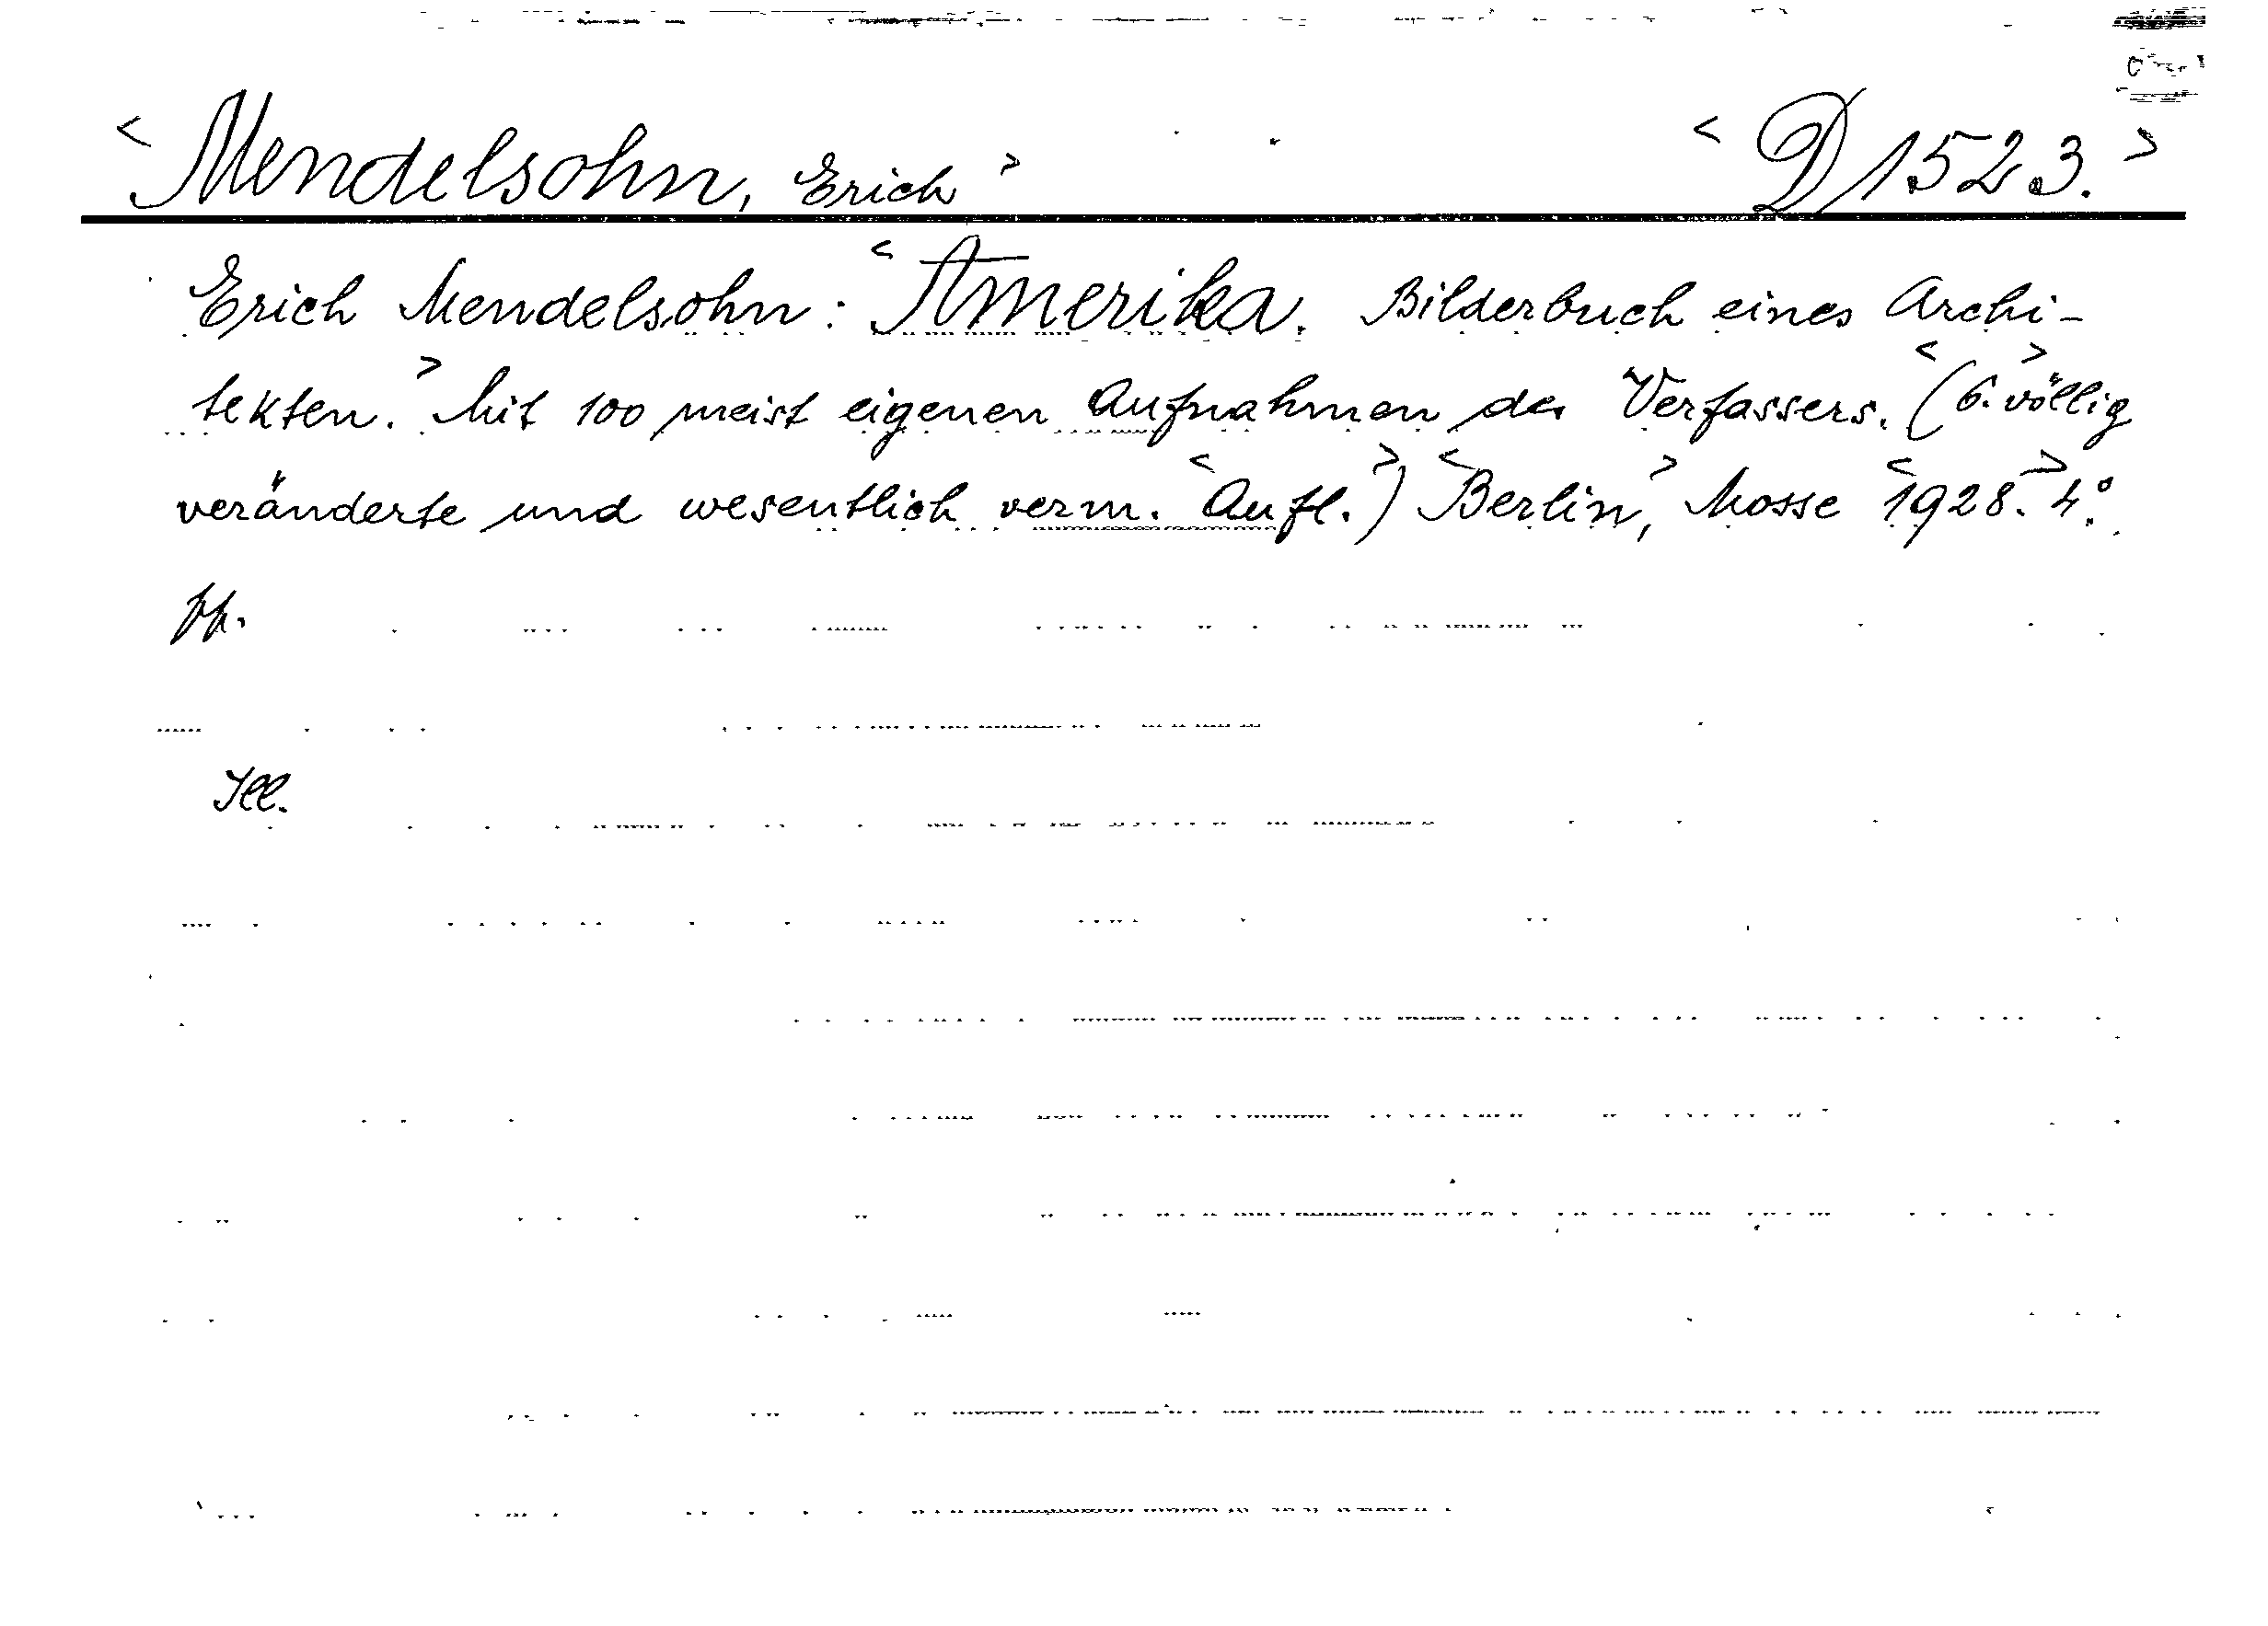 < Mendelsohn, Erich > < D 1523. >
Erich Mendelsohn: < Amerika. Bilderbuch eines Archi-
tekten. > Mit 100 meist eigenen Aufnahmen des Verfassers. (< 6. > völlig
veränderte und wesentlich verm. < Aufl. >) < Berlin, > Mosse < 1928. > 4°.
Pp.
Ill.